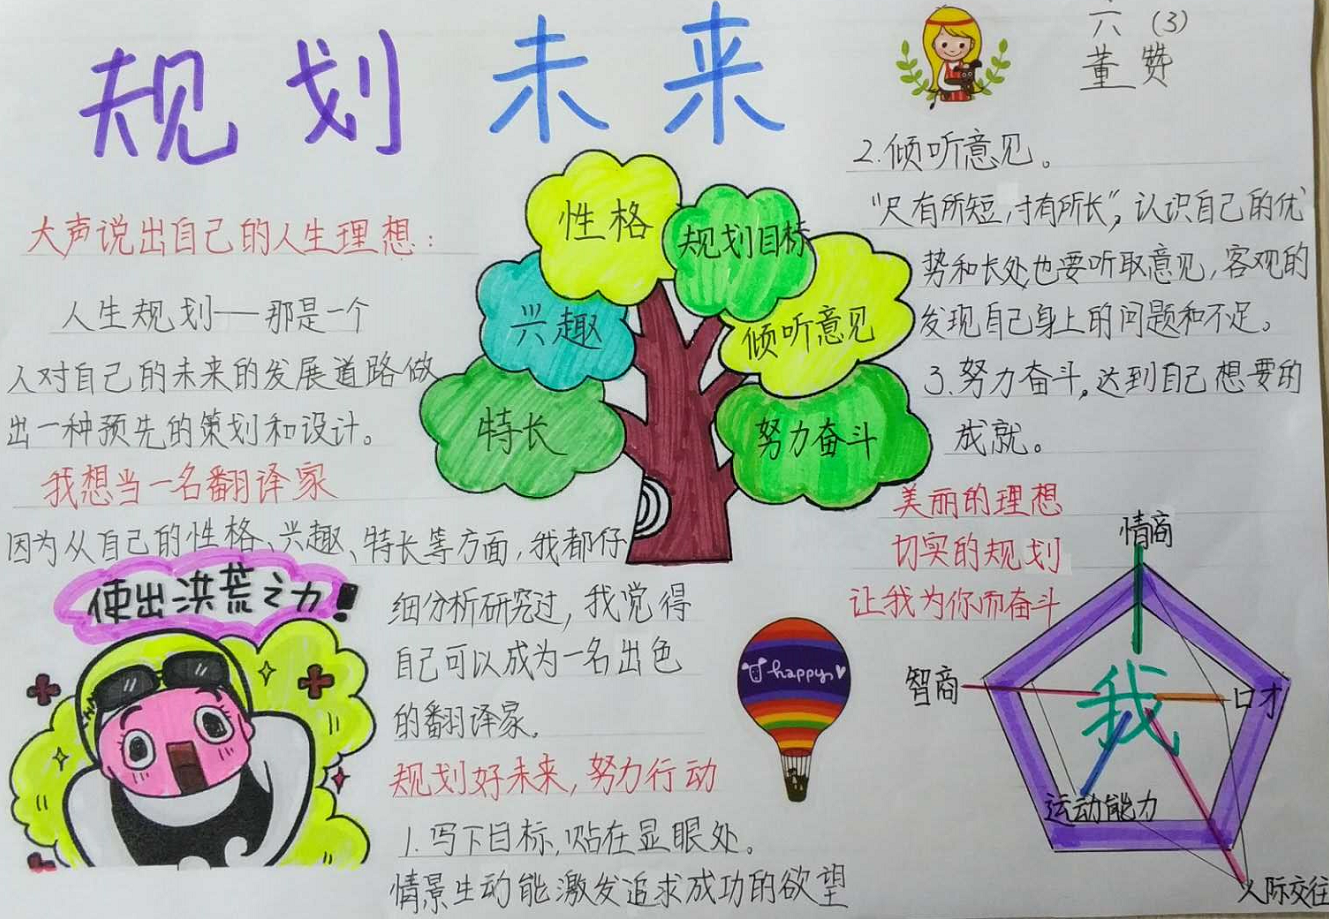 规划未来
六（3）
董赞
大声说出自己的人生理想：
人生规划——那是一个
人对自己的未来的发展道路做
出一种预先的策划和设计。
我想当一名翻译家
因为从自己的性格、兴趣、特长等方面，我都仔
细分析研究过，我觉得
自己可以成为一名出色
的翻译家。
规划好未来，努力行动
1.写下目标，贴在显眼处。
情景生动能激发追求成功的欲望
2.倾听意见。
“尺有所短，寸有所长”，认识自己的优
势和长处也要听取意见，客观的
发现自己身上的问题和不足。
3.努力奋斗，达到自己想要的
成就。
美丽的理想
切实的规划
让我为你而奋斗
性格
规划目标
兴趣
倾听意见
特长
努力奋斗
使出洪荒之力！
happy
情商
智商
我
口才
运动能力
人际交往